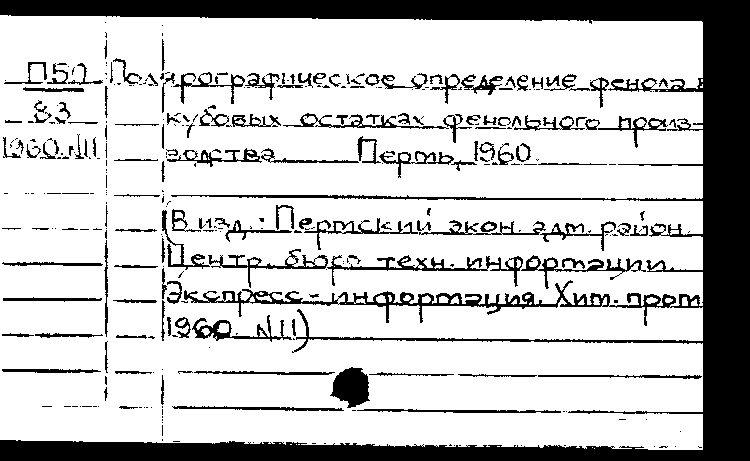 П50 Полярографическое определение фенола в
83 кубовых остатках фенольного произ-
1960.№11 водства. Пермь, 1960.
(В изд.: Пермский экон. адм. район.
Центр. бюро техн. информации.
Экспресс-информация. Хим. пром.
1960. №11)